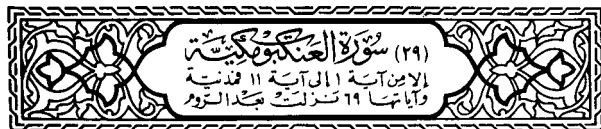 (٢٩) سورة العنكبوت مكية
إلا من آية ١ إلى آية ١١ فمدنية
وآياتها ٦٩ نزلت بعد الروم